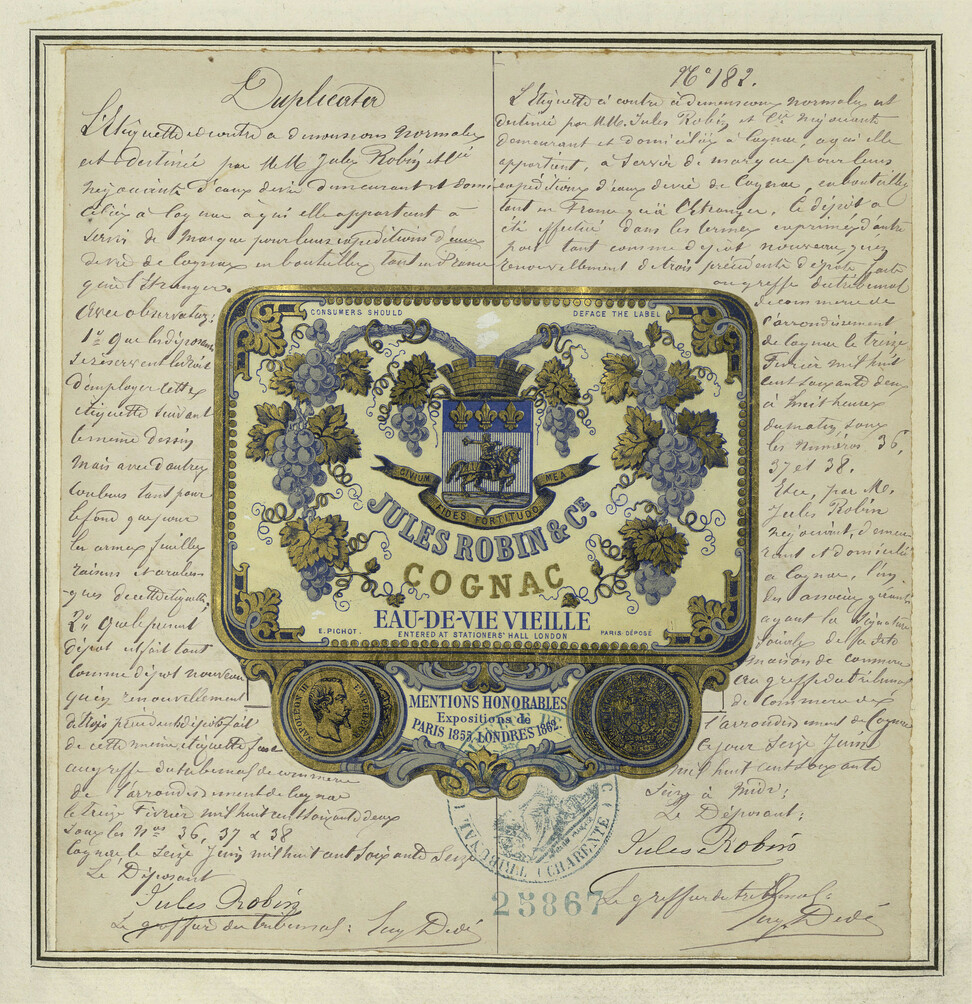 Duplicata
L'Etiquette ci contre a dimensions normales
est destinée par MM. Jules Robin et Cie
négociants d'eaux de vie demeurant et domi
ciliés à Cognac à qui elle appartient à
servir de marque pour leurs expéditions d'eaux
de vie de Cognac en bouteilles tant en France
qu'à l'Etranger.
Avec observation:
1º que les déposants
se réservent le droit
d'employer cette
étiquette suivant
le même dessin
mais avec d'autres
couleurs tant pour
le fond que pour
les armes feuilles
raisins et
de cette étiquette
2º Que le présent
dépôt est fait tant
comme dépôt nouveau
qu'en renouvellement
de trois précédents dépôts fait
de cette même étiquette
au greffe du tribunal de commerce
de l'arrondissement de Cognac
le treize Février mil huit cent soixante deux
sous les Nos 36, 37 & 38
Cognac, le Seize Juin mil huit cent soixante seize
Le Déposant
Jules Robin
Le greffier du tribunal:
Nº 182.
L'Etiquette ci contre à dimensions normales est
destinée par MM. Jules Robin et Cie négociants
demeurant et domiciliés à Cognac, à qui elle
appartient, à servir de marque pour leurs
expéditions d'eaux de vie de Cognac, en bouteilles
tant en France qu'à l'Etranger. Le dépôt a
été effectué dans les termes exprimés d'autre
part tant comme dépôt nouveau qu'en
renouvellement de trois précédents dépôts faits
au greffe du tribunal
de commerce de
l'arrondissement
de Cognac le treize
Février mil huit
cent soixante deux
à huit heures
du matin, sous
les numéros 36,
37 et 38.
Et ce, par M.
Jules Robin
négociant, demeu
rant et domicilié
à Cognac, l'un
des associés gérants
ayant la signature
sociale de la dite
maison de commerce
au greffe du tribunal
de Commerce de
l'arrondissement de Cognac
ce jour Seize Juin
mil huit cent soixante
Seize à midi;
Le Déposant:
Jules Robin
Le greffier du tribunal:
CONSUMERS SHOULD
DEFACE THE LABEL
CIVIUM MEA
FIDES FORTITUDO
JULES ROBIN & CE.
COGNAC
EAU-DE-VIE VIEILLE
E. PICHOT.
ENTERED AT STATIONERS' HALL LONDON
PARIS. DÉPOSÉ
NAPOLEON III EMPEREUR
MENTIONS HONORABLES
Expositions de
PARIS 1855, LONDRES 1862.
TRIBUNAL
(CHARENTE)
25867